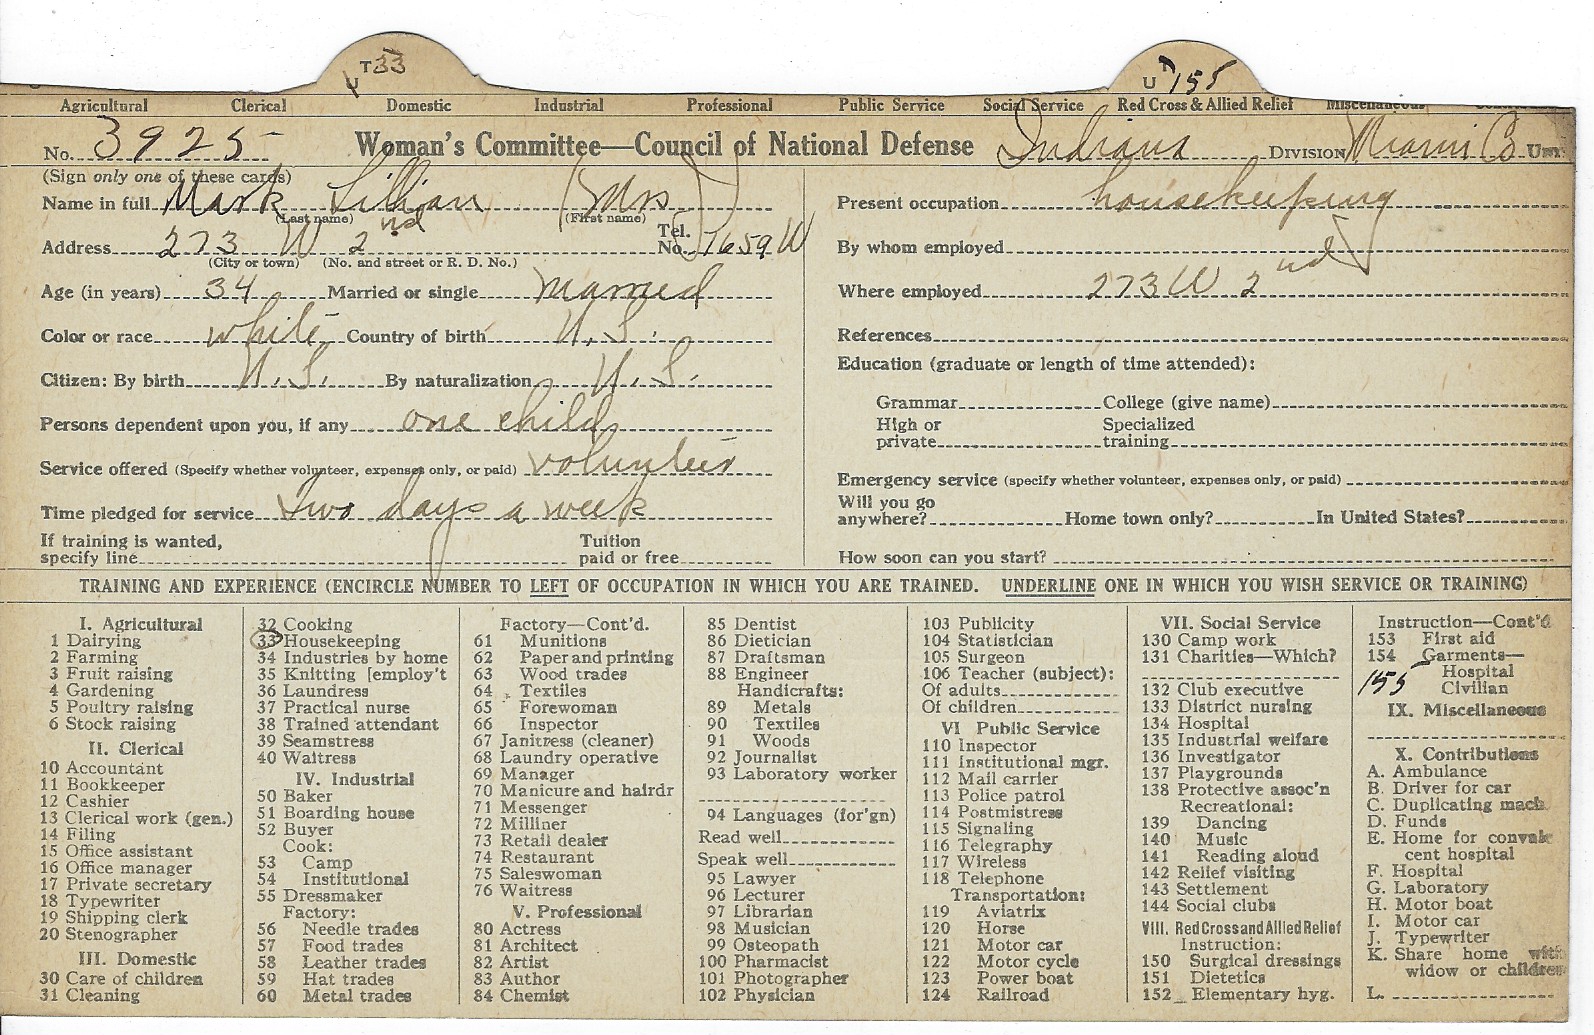 T 33
U
T
U 155
Agricultural Clerical Domestic Industrial Professional Public Service Social Service Red Cross & Allied Relief Miscellaneous
No. 3925 Woman's Committee—Council of National Defense Indiana DIVISION Miami Co
(Sign only one of these cards)
Name in full Mark Lillian (Mrs)
(Last name) (First name)
Address 273 W 2nd Tel. No. 1659 W
(City or town) (No. and street or R. D. No.)
Age (in years) 34 Married or single Married
Color or race white Country of birth U.S.
Citizen: By birth U.S. By naturalization U.S.
Persons dependent upon you, if any one child
Service offered (Specify whether volunteer, expenses only, or paid) volunteer
Time pledged for service Two days a week
If training is wanted, Tuition
specify line paid or free
Present occupation housekeeping
By whom employed
Where employed 273 W 2nd
References
Education (graduate or length of time attended):
Grammar College (give name)
High or Specialized
private training
Emergency service (specify whether volunteer, expenses only, or paid)
Will you go
anywhere? Home town only? In United States?
How soon can you start?
TRAINING AND EXPERIENCE (ENCIRCLE NUMBER TO LEFT OF OCCUPATION IN WHICH YOU ARE TRAINED. UNDERLINE ONE IN WHICH YOU WISH SERVICE OR TRAINING)
I. Agricultural
1 Dairying
2 Farming
3 Fruit raising
4 Gardening
5 Poultry raising
6 Stock raising
II. Clerical
10 Accountant
11 Bookkeeper
12 Cashier
13 Clerical work (gen.)
14 Filing
15 Office assistant
16 Office manager
17 Private secretary
18 Typewriter
19 Shipping clerk
20 Stenographer
III. Domestic
30 Care of children
31 Cleaning
32 Cooking
33 Housekeeping
34 Industries by home
35 Knitting [employ't
36 Laundress
37 Practical nurse
38 Trained attendant
39 Seamstress
40 Waitress
IV. Industrial
50 Baker
51 Boarding house
52 Buyer
Cook:
53 Camp
54 Institutional
55 Dressmaker
Factory:
56 Needle trades
57 Food trades
58 Leather trades
59 Hat trades
60 Metal trades
Factory—Cont'd.
61 Munitions
62 Paper and printing
63 Wood trades
64 Textiles
65 Forewoman
66 Inspector
67 Janitress (cleaner)
68 Laundry operative
69 Manager
70 Manicure and hairdr
71 Messenger
72 Milliner
73 Retail dealer
74 Restaurant
75 Saleswoman
76 Waitress
V. Professional
80 Actress
81 Architect
82 Artist
83 Author
84 Chemist
85 Dentist
86 Dietician
87 Draftsman
88 Engineer
Handicrafts:
89 Metals
90 Textiles
91 Woods
92 Journalist
93 Laboratory worker
94 Languages (for'gn)
Read well
Speak well
95 Lawyer
96 Lecturer
97 Librarian
98 Musician
99 Osteopath
100 Pharmacist
101 Photographer
102 Physician
103 Publicity
104 Statistician
105 Surgeon
106 Teacher (subject):
Of adults
Of children
VI Public Service
110 Inspector
111 Institutional mgr.
112 Mail carrier
113 Police patrol
114 Postmistress
115 Signaling
116 Telegraphy
117 Wireless
118 Telephone
Transportation:
119 Aviatrix
120 Horse
121 Motor car
122 Motor cycle
123 Power boat
124 Railroad
VII. Social Service
130 Camp work
131 Charities—Which?
132 Club executive
133 District nursing
134 Hospital
135 Industrial welfare
136 Investigator
137 Playgrounds
138 Protective assoc'n
Recreational:
139 Dancing
140 Music
141 Reading aloud
142 Relief visiting
143 Settlement
144 Social clubs
VIII. Red Cross and Allied Relief
Instruction:
150 Surgical dressings
151 Dietetics
152 Elementary hyg.
Instruction—Cont'd
153 First aid
154 Garments—
Hospital
155 Civilian
IX. Miscellaneous
X. Contributions
A. Ambulance
B. Driver for car
C. Duplicating mach
D. Funds
E. Home for convales
cent hospital
F. Hospital
G. Laboratory
H. Motor boat
I. Motor car
J. Typewriter
K. Share home with
widow or children
L.